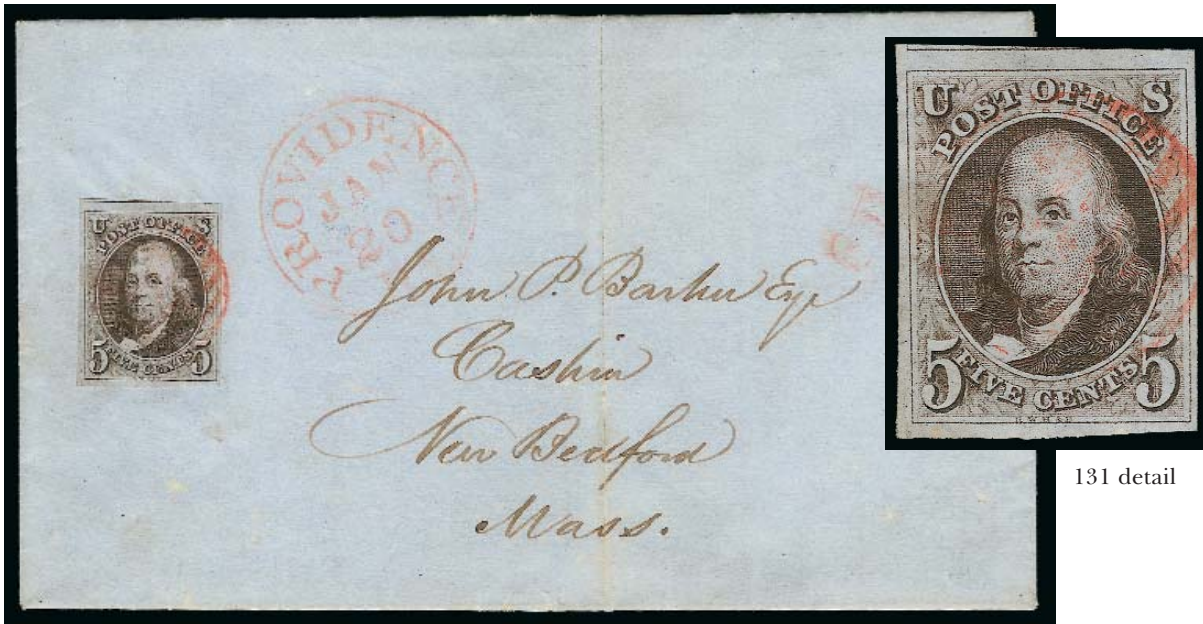 U S
POST OFFICE
5 FIVE CENTS 5
PROVIDENCE
JAN
20
5
John P. Barker Esqr
Cashier
New Bedford
Mass.
U S
POST OFFICE
5 FIVE CENTS 5
R.W.H.&E.
131 detail